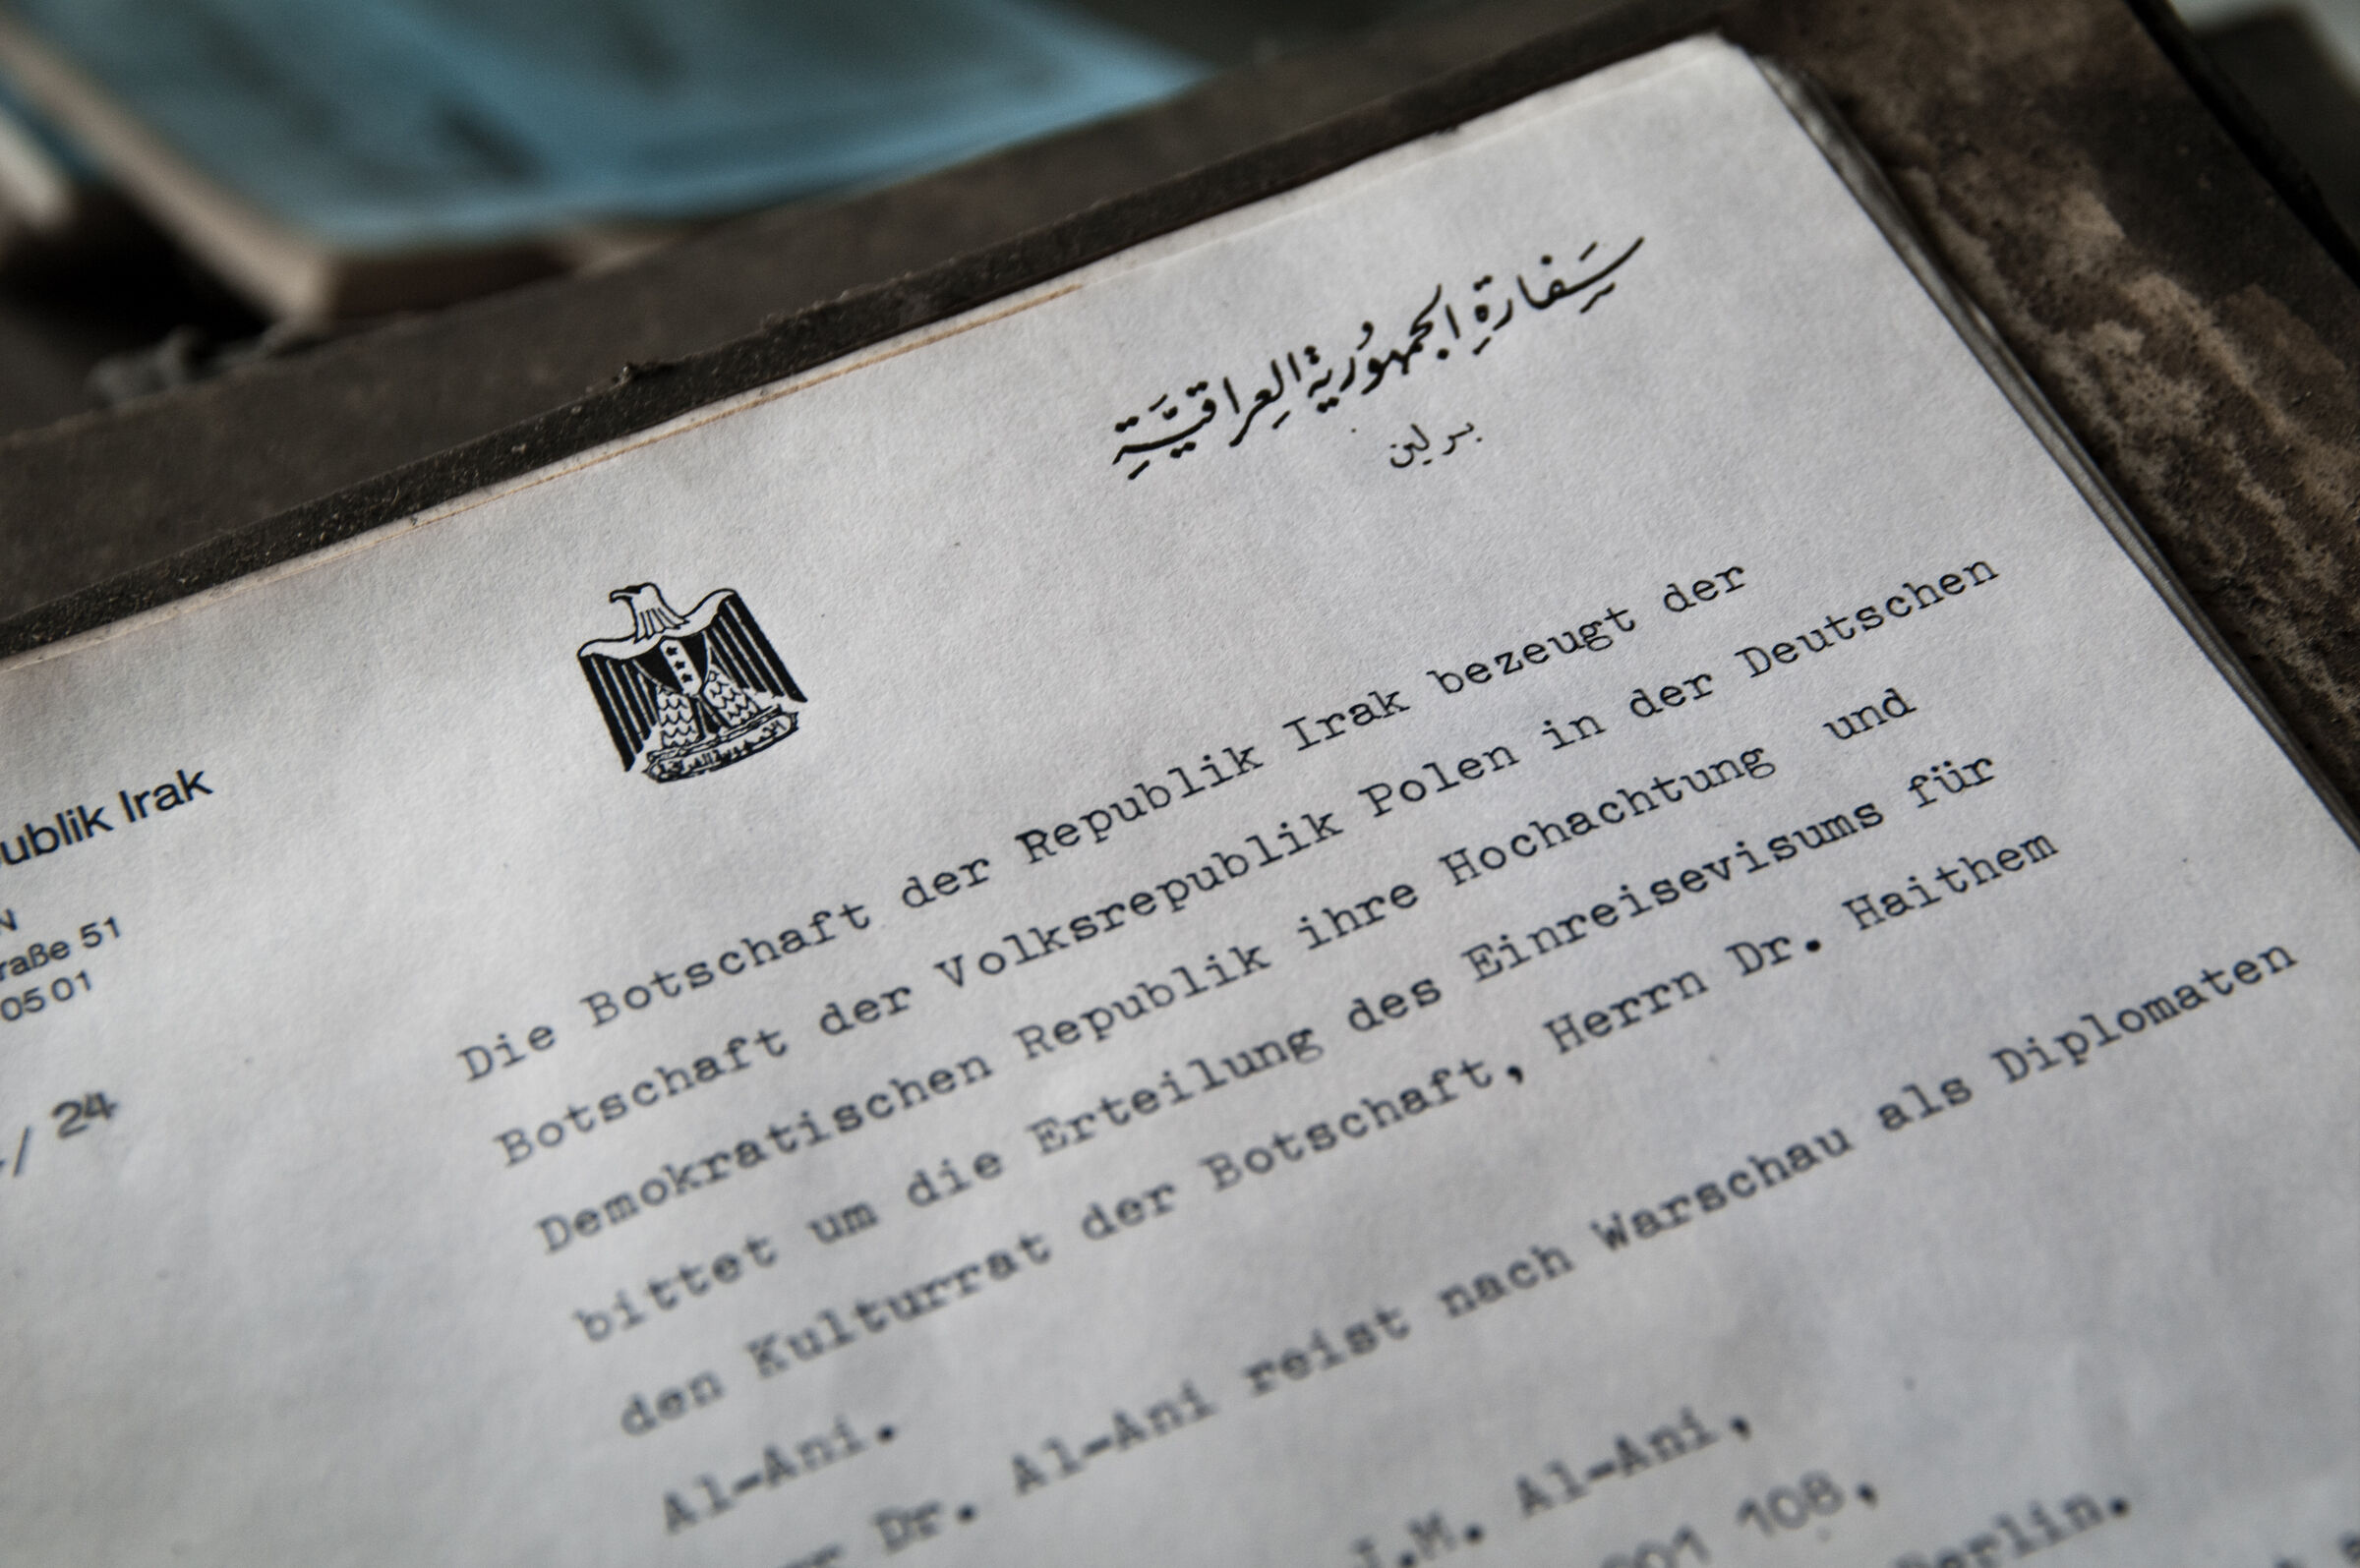 سَفارَةِ الجمهُوريّة العِراقيَّةِ
برلين
الجمهورية العراقية
ublik Irak
raße 51
05 01
/ 24
Die Botschaft der Republik Irak bezeugt der
Botschaft der Volksrepublik Polen in der Deutschen
Demokratischen Republik ihre Hochachtung und
bittet um die Erteilung des Einreisevisums für
den Kulturrat der Botschaft, Herrn Dr. Haithem
Al-Ani.
Dr. Al-Ani reist nach Warschau als Diplomaten
J.M. Al-Ani,
108,
Berlin.